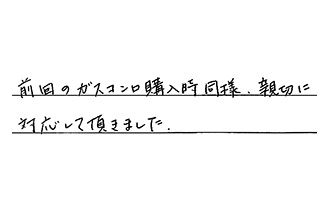 前回のガスコンロ購入時同様、親切に
対応して頂きました.